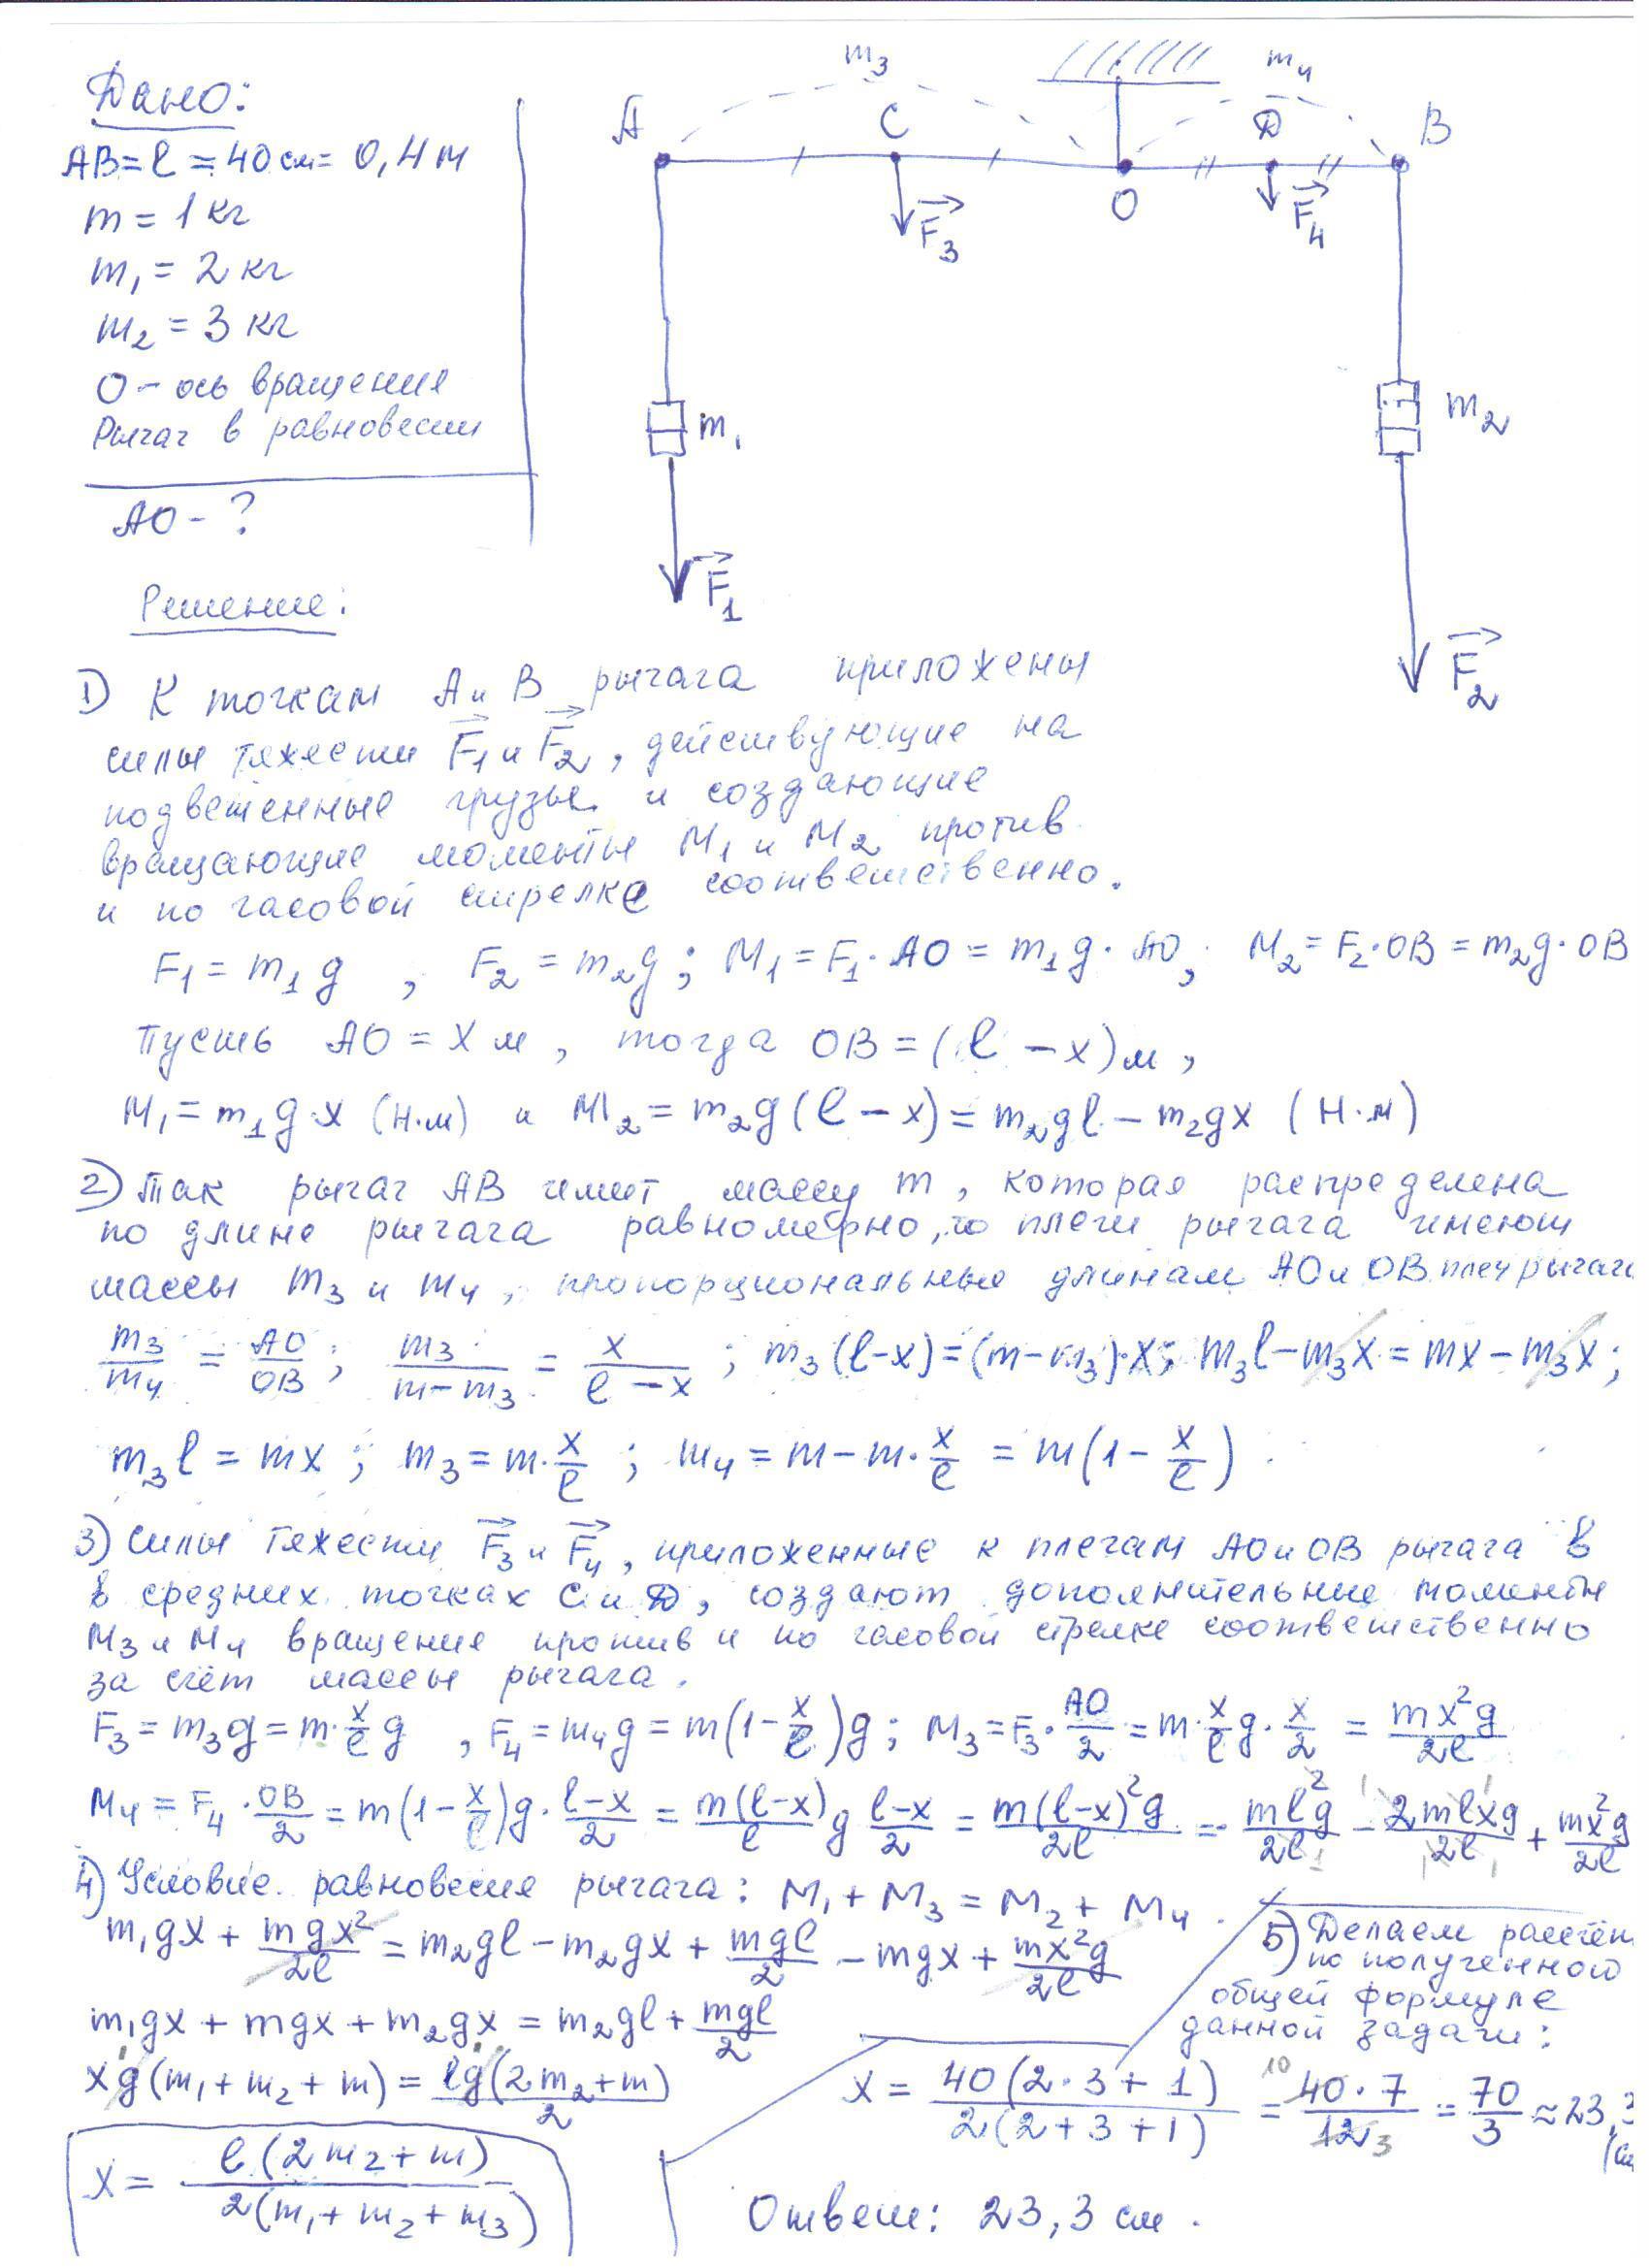 Дано:
AB = l = 40 см = 0,4 м
m = 1 кг
m₁ = 2 кг
m₂ = 3 кг
O - ось вращения
Рычаг в равновесии
AO - ?
A
m₃
C
F₃
O
m₄
D
F₄
B
m₁
F₁
m₂
F₂
Решение:
1) К точкам A и B рычага приложены
силы тяжести F₁ и F₂, действующие на
подвешенные грузы и создающие
вращающие моменты M₁ и M₂ против
и по часовой стрелке соответственно.
F₁ = m₁g , F₂ = m₂g ; M₁ = F₁·AO = m₁g·AO, M₂ = F₂·OB = m₂g·OB
Пусть AO = x м , тогда OB = (l - x) м ,
M₁ = m₁g·x (Н·м) и M₂ = m₂g(l - x) = m₂gl - m₂gx (Н·м)
2) Так рычаг AB имеет массу m , которая распределена
по длине рычага равномерно, то плечи рычага имеют
массы m₃ и m₄ , пропорциональные длинам AO и OB плеч рычага
m₃/m₄ = AO/OB ; m₃/(m - m₃) = x/(l - x) ; m₃(l-x) = (m-m₃)·x ; m₃l - m₃x = mx - m₃x ;
m₃l = mx ; m₃ = m·x/l ; m₄ = m - m·x/l = m(1 - x/l)
3) Силы тяжести F₃ и F₄ , приложенные к плечам AO и OB рычага в
в средних точках C и D , создают дополнительные моменты
M₃ и M₄ вращения против и по часовой стрелке соответственно
за счёт массы рычага .
F₃ = m₃g = m·x/l g , F₄ = m₄g = m(1 - x/l)g ; M₃ = F₃·AO/2 = m·x/l g·x/2 = mx²g/2l
M₄ = F₄·OB/2 = m(1 - x/l)g·(l-x)/2 = m(l-x)/l g (l-x)/2 = m(l-x)²g/2l = ml²g/2l - 2mlxg/2l + mx²g/2l
4) Условие равновесия рычага : M₁ + M₃ = M₂ + M₄ .
m₁gx + mgx²/2l = m₂gl - m₂gx + mgl/2 - mgx + mx²g/2l
m₁gx + mgx + m₂gx = m₂gl + mgl/2
xg(m₁ + m₂ + m) = lg(2m₂ + m)/2
x = l(2m₂ + m)/2(m₁ + m₂ + m₃)
5) Делаем
по полученной
общей формуле
данной задачи :
x = 40(2·3 + 1)/2(2 + 3 + 1) = 40·7/12 = 70/3 ≈ 23,3
10
3
Ответ: 23,3 см .